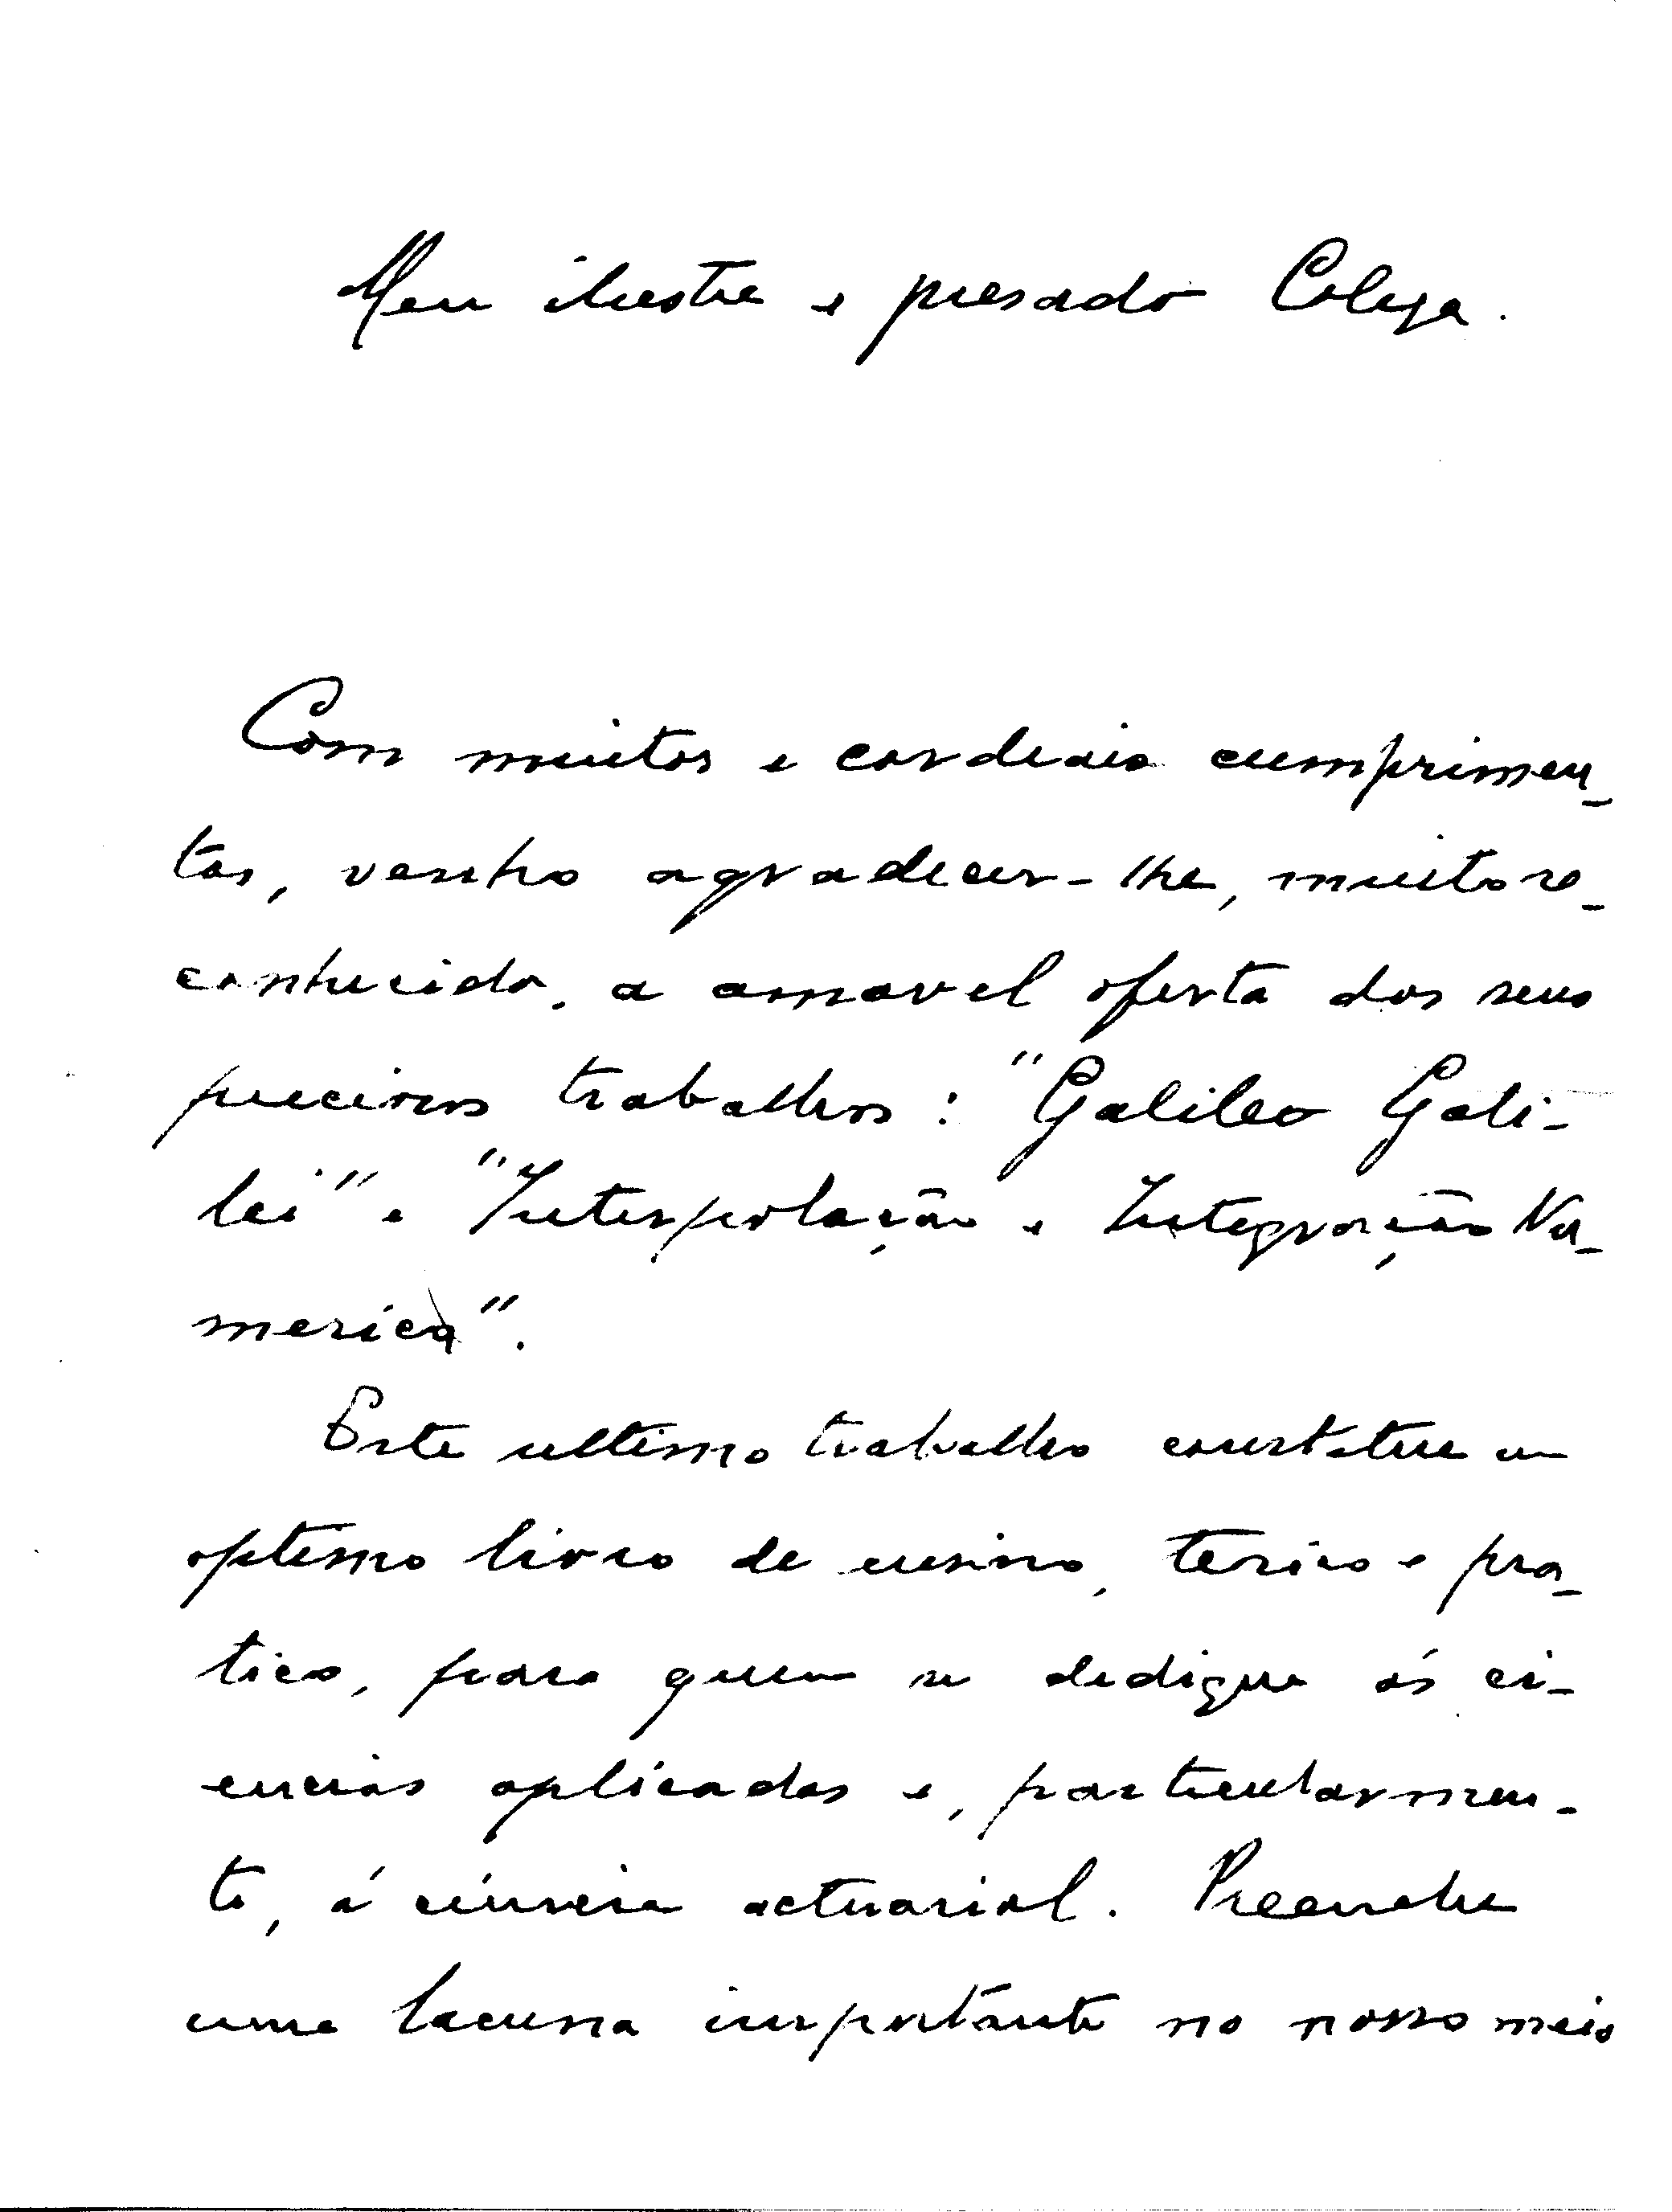 Meu ilustre e presado Colega.
Com muitos e cordeais cumprimen-
tos, venho agradecer-lhe, muito re-
conhecido, a amavel oferta dos seus
preciosos trabalhos: "Galileo Gali-
lei" e "Interpolação e Integração Nu-
merica".
Este ultimo trabalho constitue um
optimo livro de ensino, teorico e pra-
tico, para quem se dedique ás ci-
encias aplicadas e, particularmen-
te, á ciencia actuarial. Preenche
uma lacuna importante no nosso meio